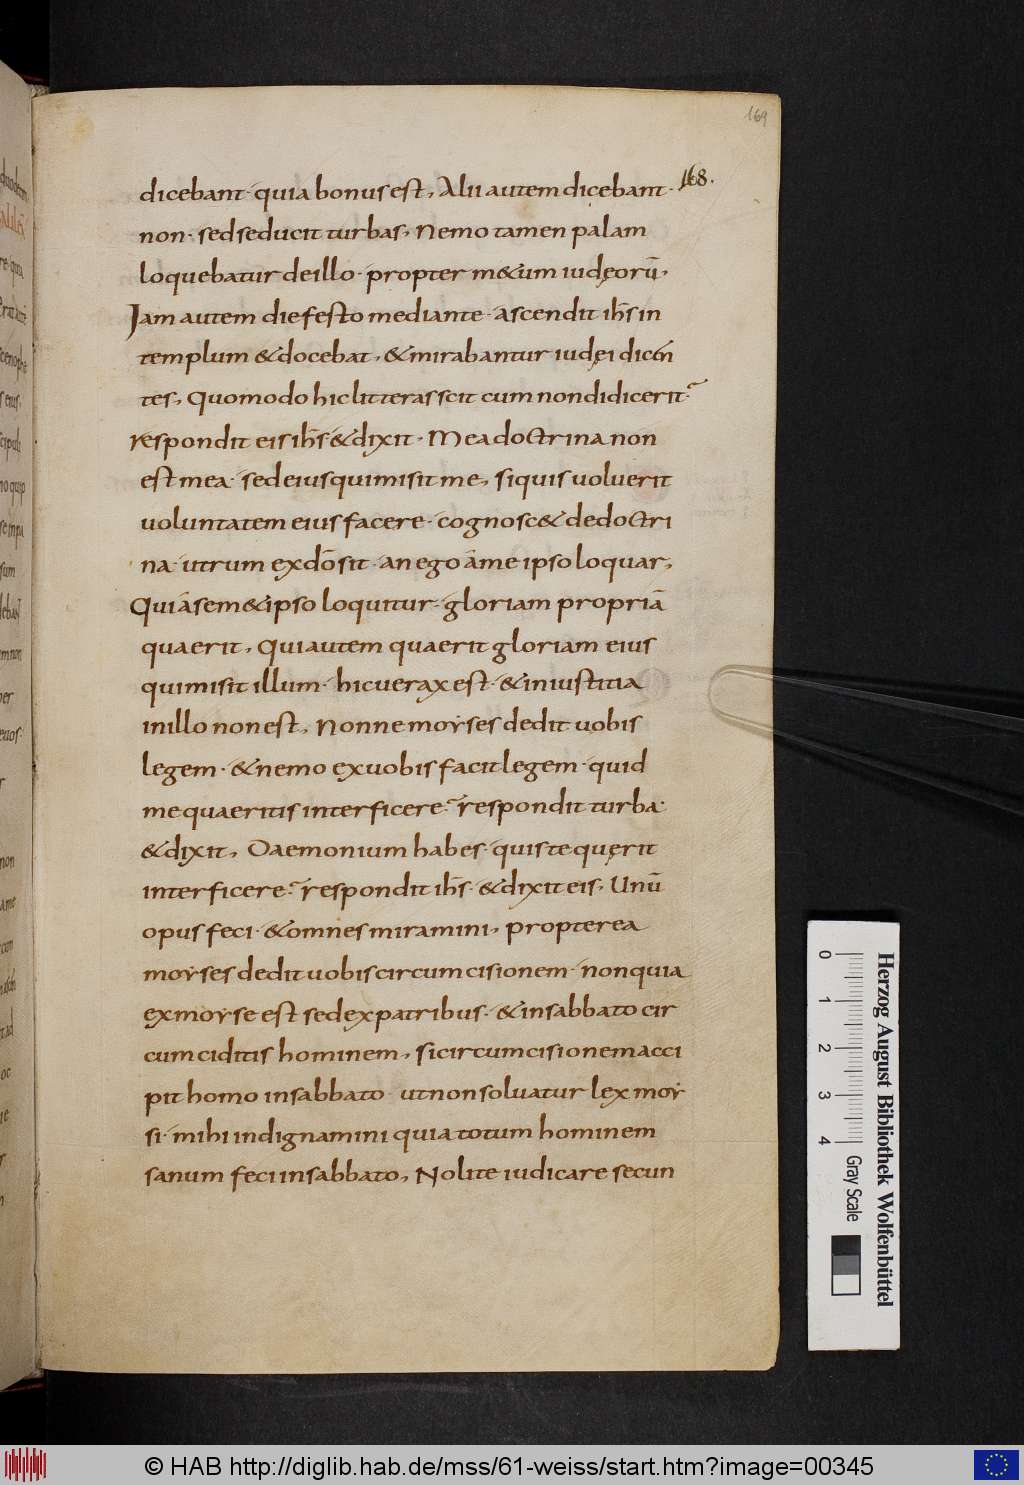 169
168.
dicebant· quia bonus est, Alii autem dicebant·
non· sed seducit turbas, Nemo tamen palam
loquebatur de illo· propter m&um iudęorū,
Jam autem die festo mediante· ascendit ih̅s in
templum & docebat, & mirabantur iudęi dicen
tes, Quomodo hic litteras scit cum non didicerit?
respondit eis ih̅s· & dixit· Mea doctrina non
est mea· sed eius qui misit me, si quis voluerit
voluntatem eius facere· cognosc& de doctri
na· utrum ex dō sit· an ego a me ipso loquar,
Qui a sem&ipso loquitur· gloriam propriā
quaerit, Qui autem quaerit gloriam eius
qui misit illum· hic uerax est· & iniustitia
in illo non est, Nonne moyses dedit uobis
legem· & nemo ex uobis facit legem· quid
me quaeritis interficere? respondit turba·
& dixit, Daemonium habes· quis te quęrit
interficere? respondit ih̅s· & dixit eis, Unū
opus feci· & omnes miramini, propterea
moyses dedit uobis circumcisionem· non quia
ex moyse est sed ex patribus· & in sabbato cir
cumciditis hominem, si circumcisionem acci
pit homo in sabbato· ut non soluatur lex moy
si· mihi indignamini quia totum hominem
sanum feci in sabbato, Nolite iudicare secun
0 1 2 3 4
Gray Scale
Herzog August Bibliothek Wolfenbüttel
© HAB http://diglib.hab.de/mss/61-weiss/start.htm?image=00345